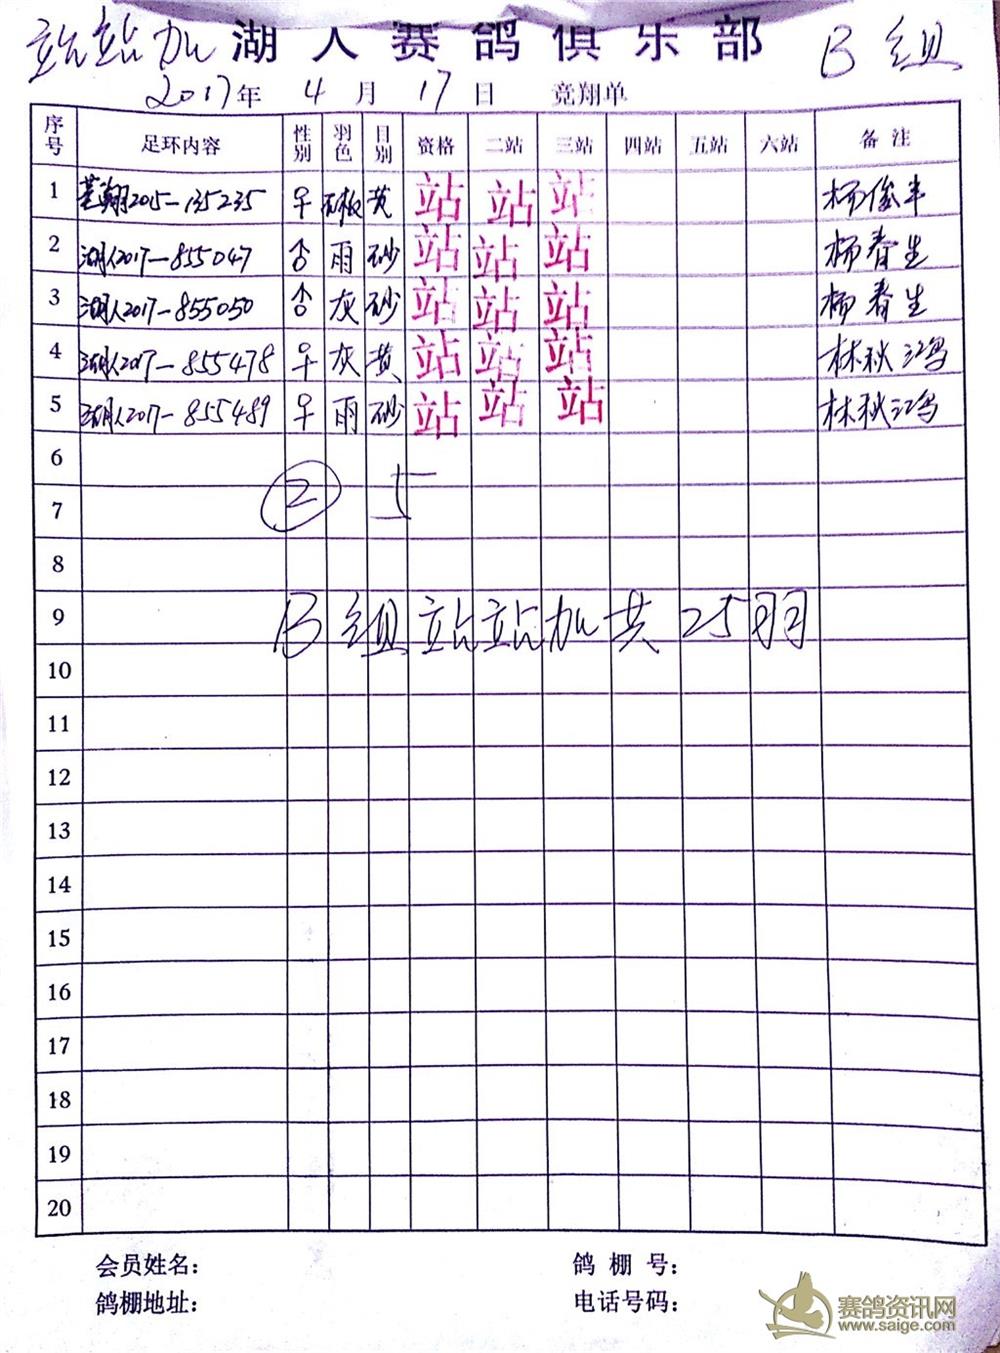 站站加 湖人赛鸽俱乐部 B组
2017年 4月 17日 竞翔单
序号 足环内容 性别 羽色 目别 资格 二站 三站 四站 五站 六站 备注
1 翔2015-135235 ♀ 石板 黄 站 站 站 杨俊丰
2 湖人2017-855047 ♂ 雨 砂 站 站 站 杨春生
3 湖人2017-855050 ♂ 灰 砂 站 站 站 杨春生
4 湖人2017-855478 ♀ 灰 黄 站 站 站 林秋鸿
5 湖人2017-855489 ♀ 雨 砂 站 站 站 林秋鸿
6
② 5
7
8
9 B组站站加共25羽
10
11
12
13
14
15
16
17
18
19
20
会员姓名： 鸽棚号：
鸽棚地址： 电话号码：
赛鸽资讯网
www.saige.com